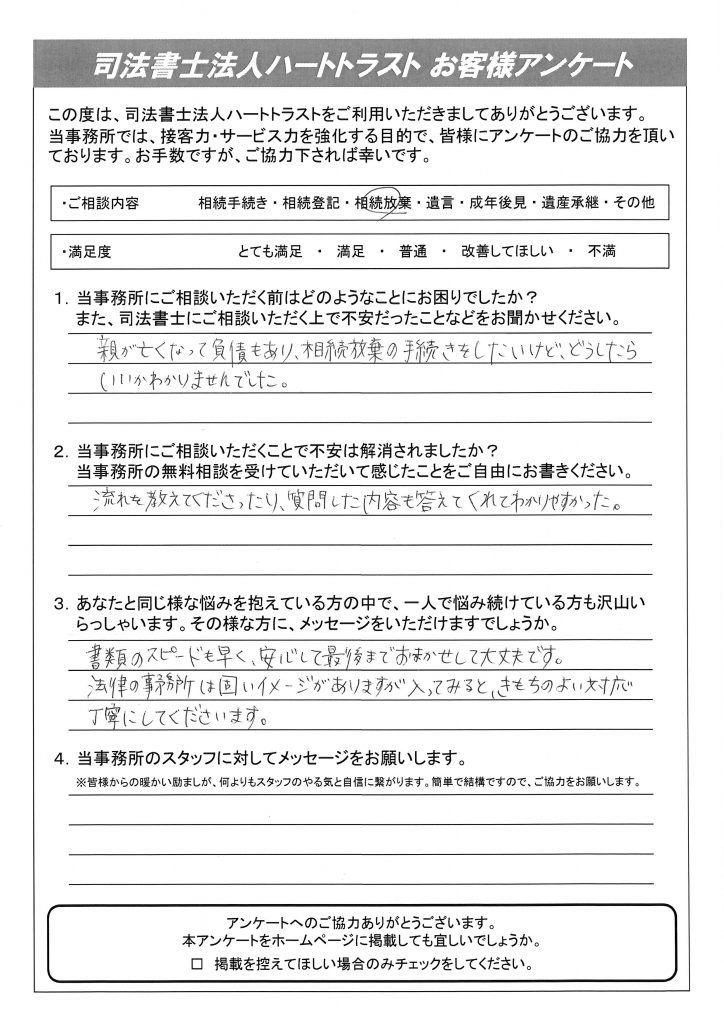 司法書士法人ハートトラスト お客様アンケート
この度は、司法書士法人ハートトラストをご利用いただきましてありがとうございます。
当事務所では、接客力・サービス力を強化する目的で、皆様にアンケートのご協力を頂い
ております。お手数ですが、ご協力下されば幸いです。
・ご相談内容 相続手続き・相続登記・相続放棄・遺言・成年後見・遺産承継・その他
・満足度 とても満足 ・ 満足 ・ 普通 ・ 改善してほしい ・ 不満
1．当事務所にご相談いただく前はどのようなことにお困りでしたか？
また、司法書士にご相談いただく上で不安だったことなどをお聞かせください。
親が亡くなって負債もあり、相続放棄の手続きをしたいけど、どうしたら
いいかわかりませんでした。
2．当事務所にご相談いただくことで不安は解消されましたか？
当事務所の無料相談を受けていただいて感じたことをご自由にお書きください。
流れを教えてくださったり、質問した内容も答えてくれてわかりやすかった。
3．あなたと同じ様な悩みを抱えている方の中で、一人で悩み続けている方も沢山い
らっしゃいます。その様な方に、メッセージをいただけますでしょうか。
書類のスピードも早く、安心して最後までおまかせして大丈夫です。
法律の事務所は固いイメージがありますが入ってみると、きもちのよい対応
丁寧にしてくださいます。
4．当事務所のスタッフに対してメッセージをお願いします。
※皆様からの暖かい励ましが、何よりもスタッフのやる気と自信に繋がります。簡単で結構ですので、ご協力をお願いします。
アンケートへのご協力ありがとうございます。
本アンケートをホームページに掲載しても宜しいでしょうか。
□ 掲載を控えてほしい場合のみチェックをしてください。